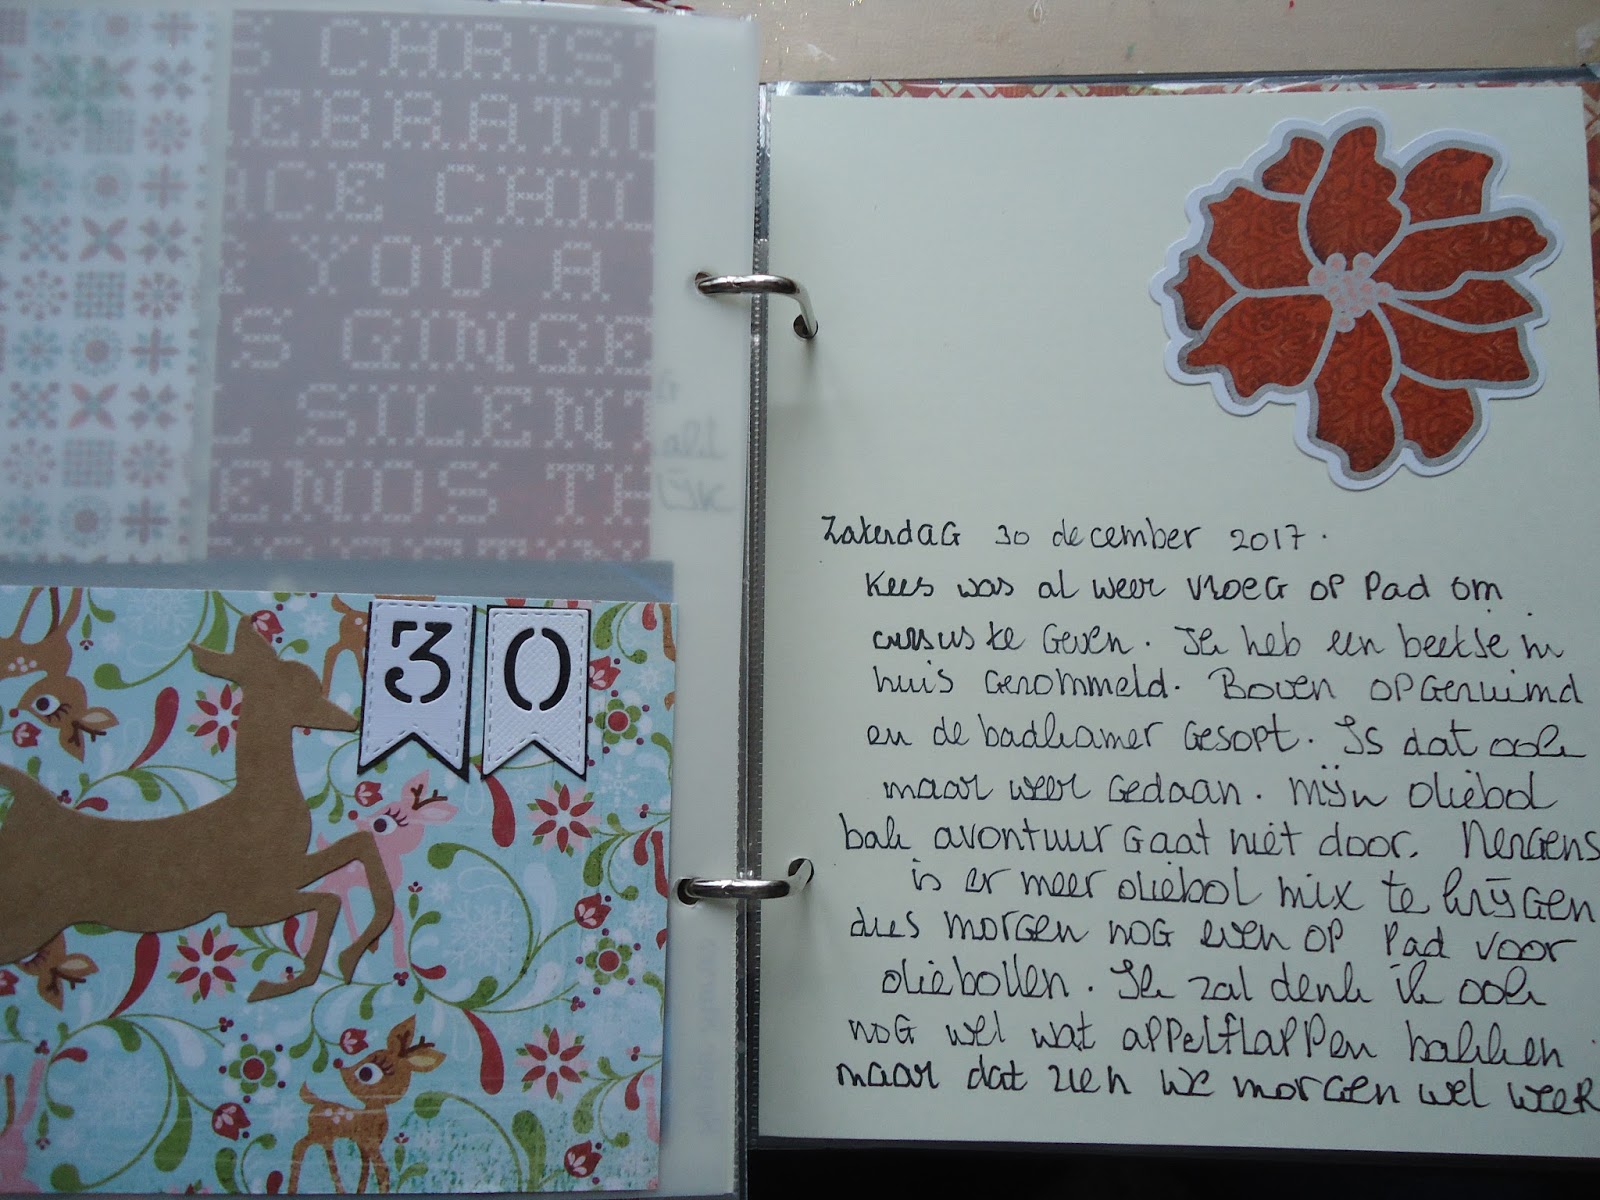 S CHRIS
EBRATIO
ACE CHIL
YOU A
S GINGE
L SILENT
ENDS TH
alt
30
Zaterdag 30 december 2017.
Kees was al weer vroeg op pad om
cursus te geven. Ik heb een beetje in
huis gerommeld. Boven opgeruimd
en de badkamer gesopt. Is dat ook
maar weer gedaan. Mijn oliebol
bak avontuur gaat niet door. Nergens
is er meer oliebol mix te krijgen
dus morgen nog even op pad voor
oliebollen. Ik zal denk ik ook
nog wel wat appelflappen bakken.
maar dat zien we morgen wel weer